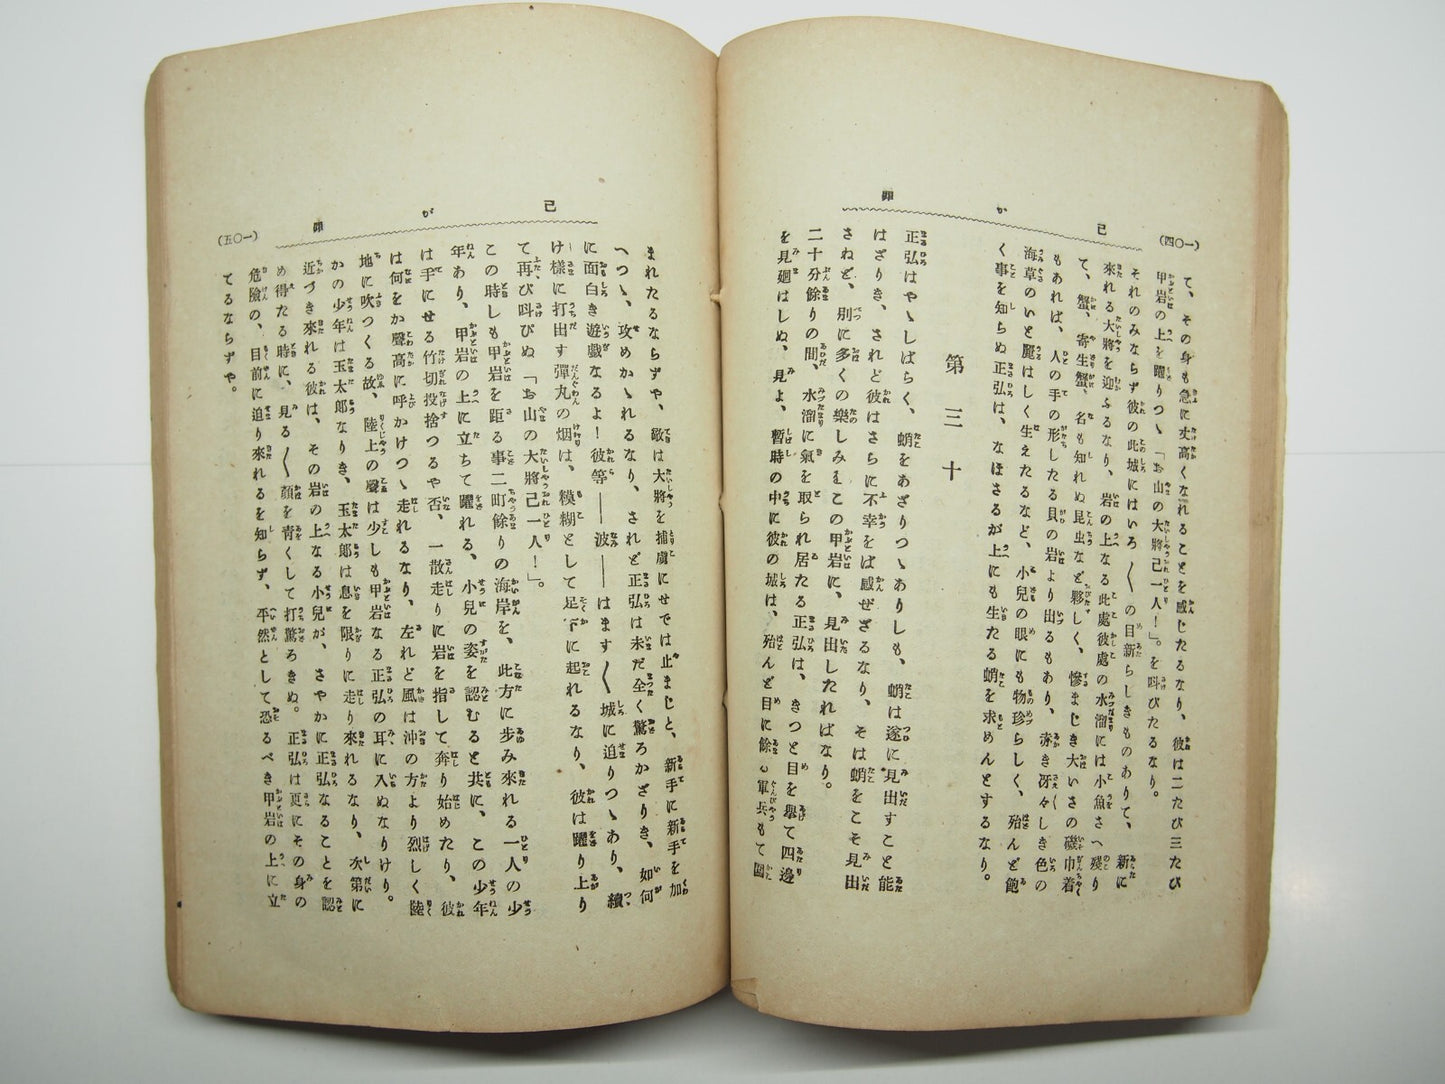 己が罪
(一〇四)
て、その身も急に丈高くなれることを感じたるなり、彼は二たび三たび
甲岩の上を躍りつゝ「お山の大將己一人!」。を叫びたるなり。
それのみならず彼の此城にはいろ〱の目新らしきものありて、新に
來れる大將を迎ふるなり、岩の上なる此處彼處の水溜には小魚さへ殘り
て、蟹、寄生蟹、名も知れぬ昆虫など夥しく、慘まじき大いさの磯巾着
もあれば、人の手の形したる貝の岩より出るもあり、赤き冴々しき色の
海草のいと麗はしく生えたるなど、小兒の眼にも物珍らしく、殆んど飽
く事を知らぬ正弘は、なほさるが上にも生たる蛸を求めんとするなり。
第三十
正弘はやゝしばらく、蛸をあざりつゝありしも、蛸は遂に見出すこと能
はざりき、されど彼はさらに不幸をば感ぜざるなり、そは蛸をこそ見出
さねど、別に多くの樂しみをこの甲岩に、見出したればなり。
二十分餘りの間、水溜に氣を取られ居たる正弘は、きつと目を擧て四邊
を見廻はしぬ、見よ、暫時の中に彼の城は、殆んど目に餘る軍兵もて圍
己が罪
(一〇五)
まれたるならずや、敵は大將を捕虜にせでは止まじと、新手に新手を加
へつゝ、攻めかゝれるなり、されど正弘は未だ全く驚ろかざりき、如何
に面白き遊戲なるよ!彼等――波――はます〱城に迫りつゝあり、續
け樣に打出す彈丸の烟は、糢糊として足下に起れるなり、彼は躍り上り
て再び叫びぬ「お山の大將己一人!」。
この時しも甲岩を距る事二町餘りの海岸を、此方に歩み來れる一人の少
年あり、甲岩の上に立ちて躍れる、小兒の姿を認むると共に、この少年
は手にせる竹切投捨つるや否、一散走りに岩を指して奔り始めたり、彼
は何をか聲高に呼かけつゝ走れるなり、左れど風は沖の方より烈しく陸
地に吹つくる故、陸上の聲は少しも甲岩なる正弘の耳に入ぬなりけり。
かの少年は玉太郎なりき、玉太郎は息を限りに走り來れるなり、次第に
近づき來れる彼は、その岩の上なる小兒が、さやかに正弘なることを認
め得たる時に、見る〱顏を青くして打驚ろきぬ。正弘は更にその身の
危險の、目前に迫り來れるを知らず、平然として恐るべき甲岩の上に立
てるならずや。